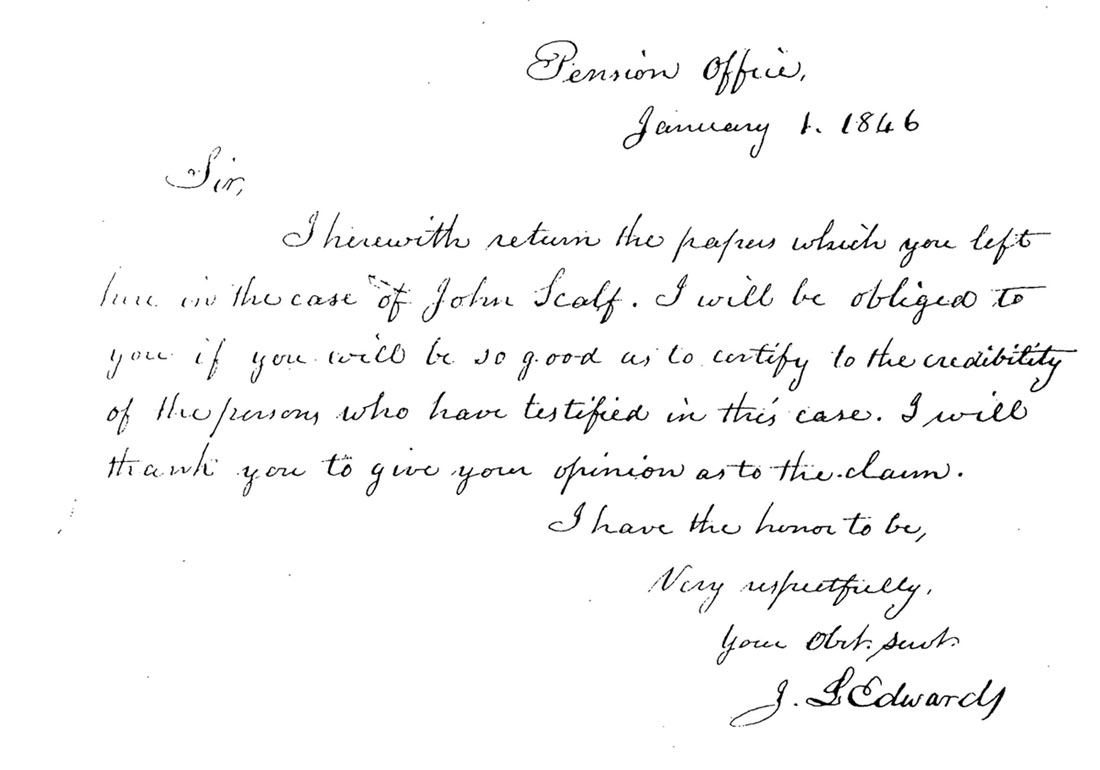 Pension Office,
January 1. 1846
Sir,
I herewith return the papers which you left
here in the case of John Scalf. I will be obliged to
you if you will be so good as to certify to the credibility
of the persons who have testified in this case. I will
thank you to give your opinion as to the claim.
I have the honor to be,
Very respectfully,
Your Obt. Servt.
J. L Edwards